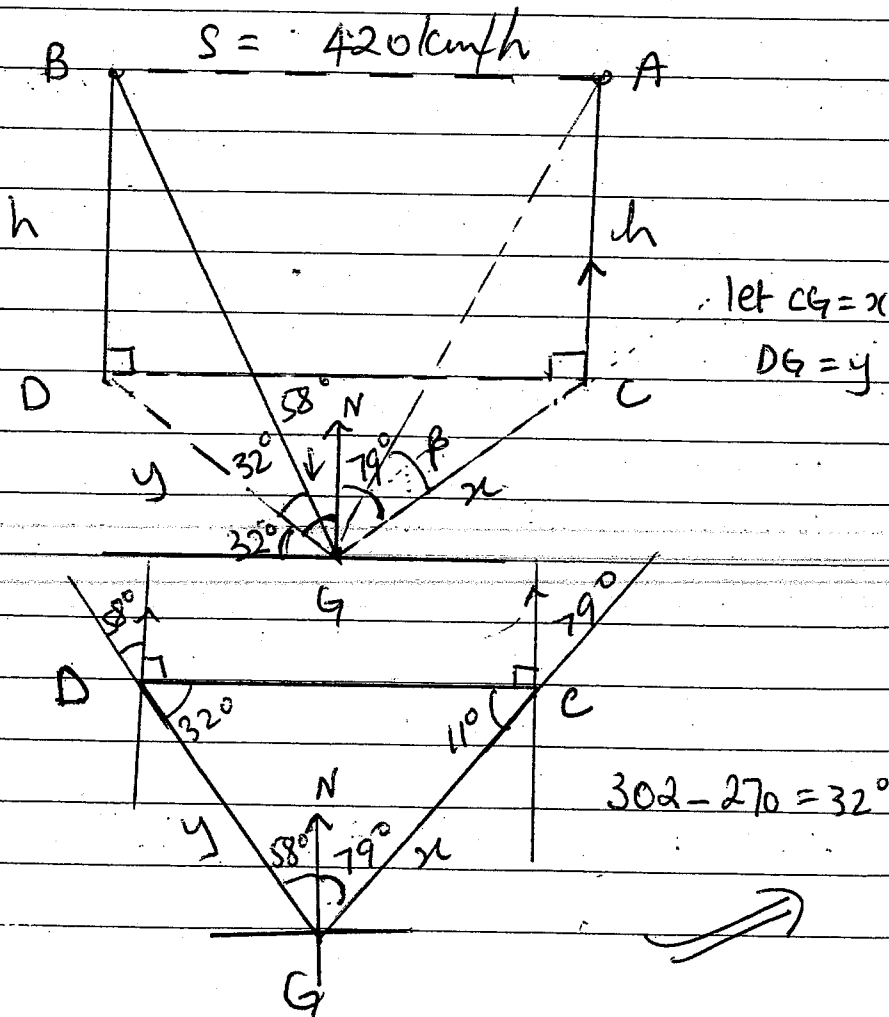 S = 420 km/h
B A
h h
let CG = x
DG = y
D C
58° N
32° 79° β
y x
32°
G
58° 79°
D C
32° 11°
N
302 - 270 = 32°
y 58° 79° x
G